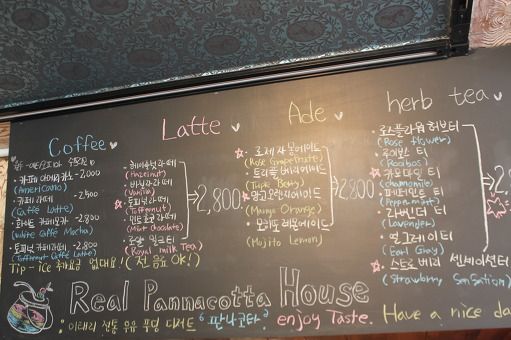 Coffee
카페 아메리카노 - 2,000
(Americano)
카페라떼 - 2,500
(Caffé Latte)
화이트 카페모카 - 2,800
(White Caffé Mocha)
토피넛 카페라떼 - 2,800
(Toffeenut Caffé Latte)
Tip - ice 추가요금 없대요! (전 음료 Ok!)
Latte
헤이즐넛라떼
(Hazelnut)
바닐라라떼
(Vanilla)
토피넛라떼
(Toffeenut)
민트초코라떼
(Mint chocolate)
로얄 밀크티
(Royal milk Tea)
2,800
Ade
로제 자몽에이드
(Rose Grapefruite)
트리플 베리에이드
(Triple Berry)
망고오렌지에이드
(Mango Orange)
모히또 레몬에이드
(Mojito Lemon)
2,800
herb tea
로즈플라워 허브티
(Rose flower)
루이보스 티
(Rooibos)
카모마일 티
(chamomile)
페퍼민트 티
(Peppermint)
라벤더 티
(Lavender)
얼그레이 티
(Earl Gray)
스트로베리 센세이션티
(Strawberry Sensation)
2,
Real Pannacotta House
: 이태리 전통 우유 푸딩 디저트 "판나코타" enjoy Taste. Have a nice da